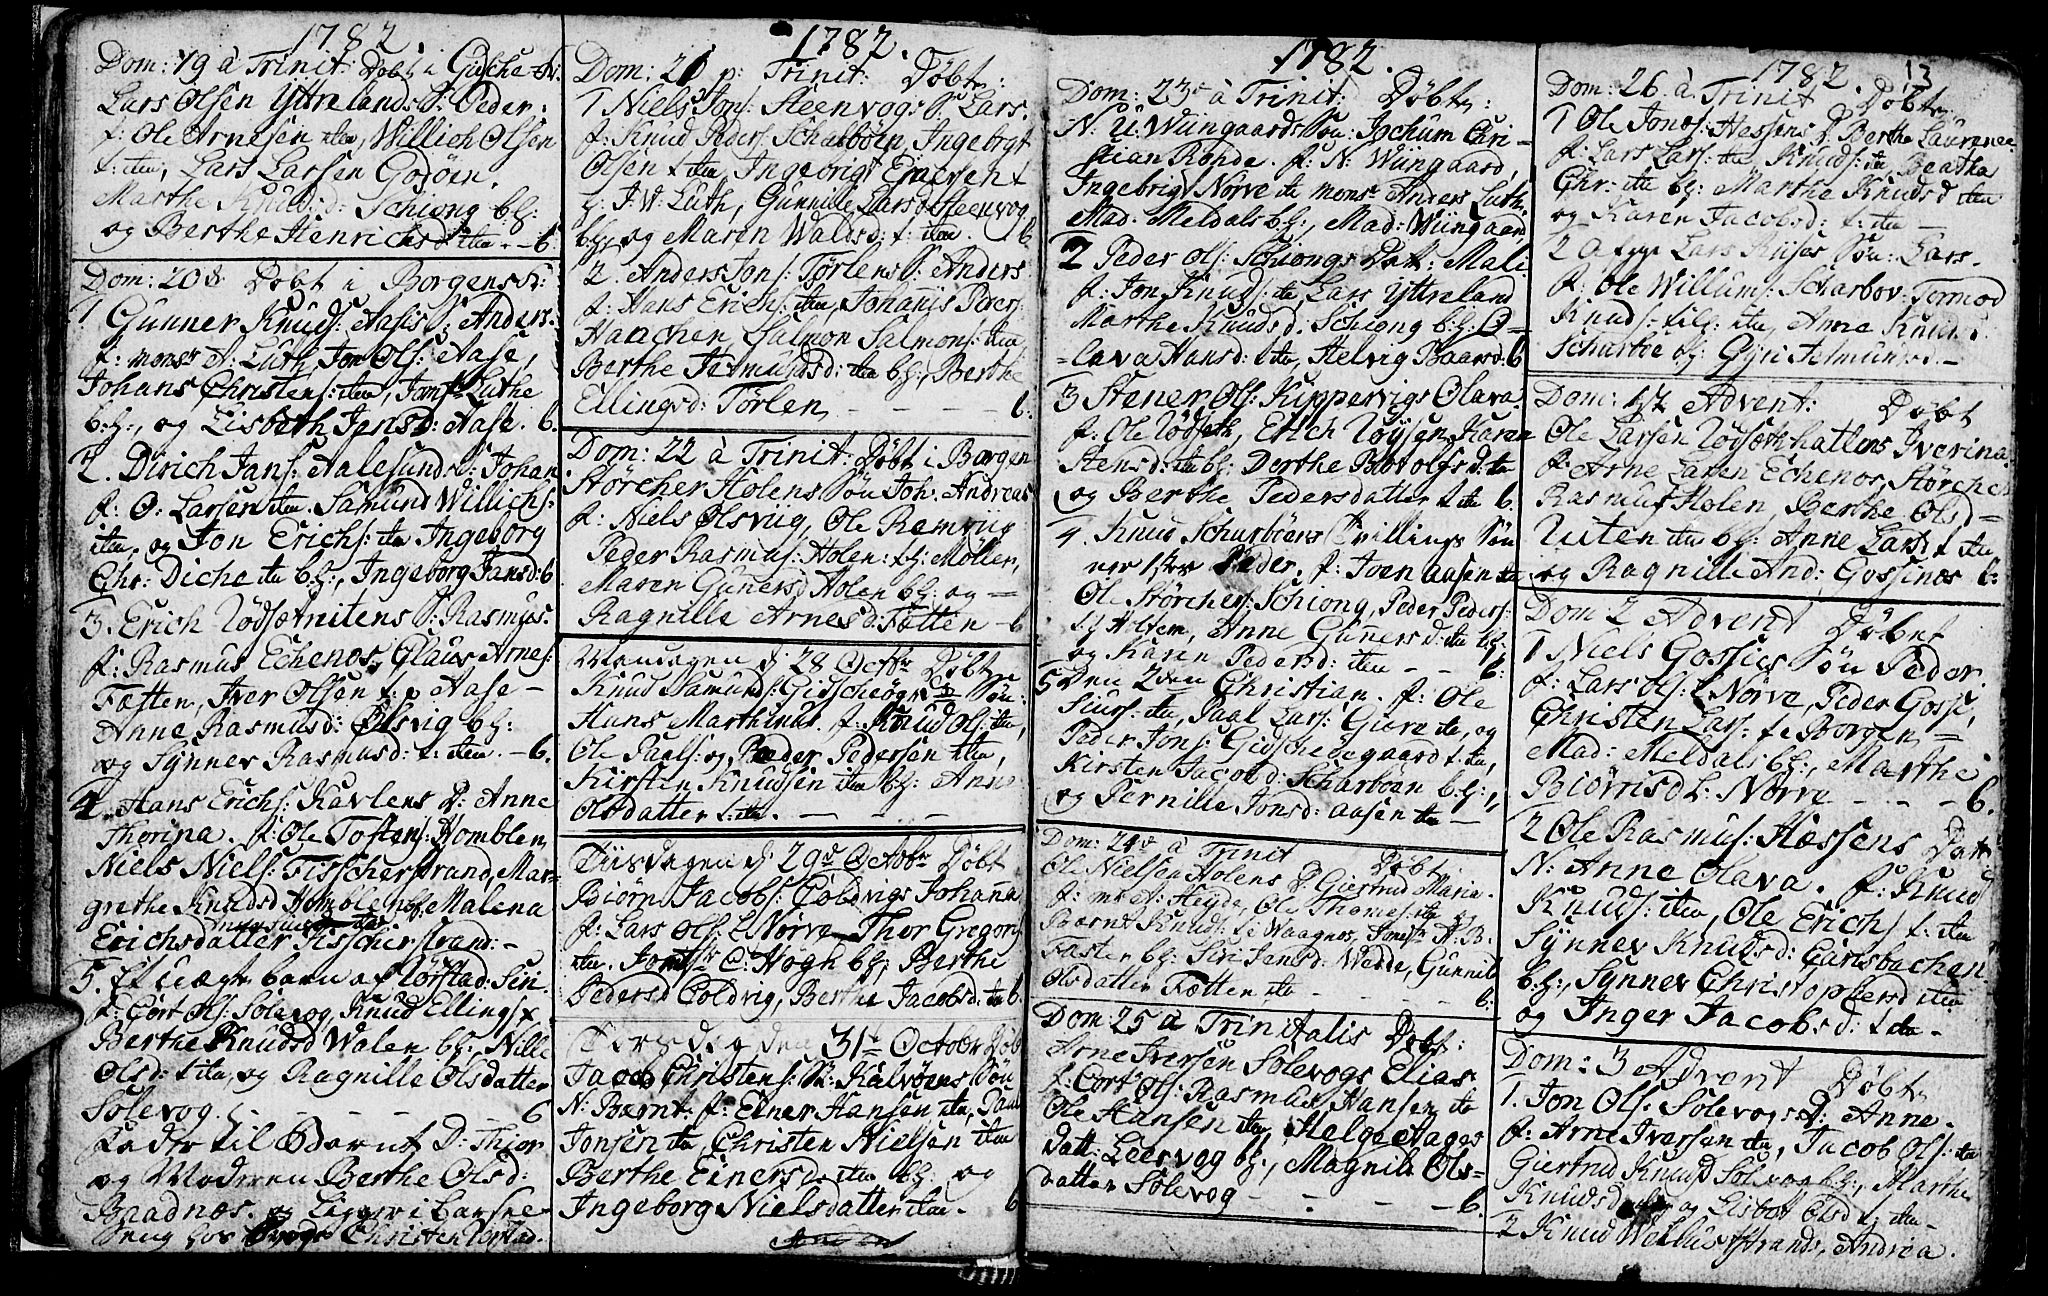 1782.
Dom: 19 à Trinit: Døbt i Gidsche
Lars Olsen Yttrelands S: Peder.
f: Ole Arnesen ita, Willich Olsen
t: ita, Lars Larsen Godøen.
Marthe Knudsd: Schiong b:f:
og Berthe Henrichsd: ita. - 6
Dom: 20de Døbt i Borgens
1 Gunner Knuds: Aasis S: Anders.
f: monsr A: Luth, Jon Ols: Aase,
Johans Christens: ita, Jomfr Luthe
b:f:, og Lisbeth Jensd: Aase. 6.
2. Dirich Jans: Aalesunds S: Johan
f: O: Larsen ita. Samund Willichs:
ita, og Jon Erichs: ita Ingeborg
Chr: Diche ita b:f:, Ingeborg Jansd: 6
3. Erich Rødsætnitens S: Rasmus.
f: Rasmus Echenos, Glaus Arnes:
Fætten, Iver Olsen t: Aase -
Anne Rasmusd: Olsvig b:f:
og Synnev Rasmusd: t: ita. - 6.
4. Hans Erichs: Kavlens D: Anne
Thorina. f: Ole Tostens: Homblen,
Niels Niels: Fisscherstrand, Mar-
grethe Knudsd Homblen b:f: Malena
Erichsdatter Fisscherstrand: -
5. Et uægte barn af Rørstad: Siri.
f: Cort Ols: Solevog, Knud Ellings:
Berthe Knudsd Walen b:f:, Nille
Olsd: t ita, og Ragnille Olsdatter
Solevog. - - - - - 6
Fader til Barnet D: Thior
og Moderen Berthe Olsd:
Baadnæs. og Ligger i Barsel-
seng hos Christen Rørstad.
1782.
Dom: 21 p: Trinit: Døbt:
1 Niels Jons: Steenvogs S Lars.
f: Knud Peders: Scharbøen, Ingebrigt
Olsen t ita, Ingebrigt Einersen t
b: J. W: Luth, Gunnille Larsd Steenvog
b:f:, og Maren Waldsd: t: ita. 6
2. Anders Jons: Tørlens S: Anders
f: Hans Erichs: ita, Johannis Peders:
Haachen, Salmon Salmons: ita,
Berthe Jetmundsd: ita b:f:, Berthe
Ellingsd: Tørlen - - - - 6.
Dom: 22 à Trinit: Døbt i Borgen
Størcher Holens Søn Joh: Andreas
f: Niels Olsviig, Ole Remviig
Peder Rasmus: Holen: t:f: Möller,
Maren Gunnersd Holen b:f: og -
Ragnille Arnesd: Fætten - 6
Mandagen d: 28 Octbr Døbt
Knud Samunds: Gidscheøgrd Søn:
Hans Marthinus. f: Knud Ols: ita,
Ole Paals: og, Peder Pedersen t ita,
Kirsten Knudsen ita b:f: Anne
Olsdatter t: ita. - - - -
Tiisdagen d: 29de Octobr Døbt
Biørn Jacobs: Coldvigs Johanna
f: Lars Ols: L Nørve, Thor Gregors:
ita. Jomfr C: Høgh b:f: Berthe
Pedersd Coldvig, Berthe Jacobsd: ita 6.
Torsdag den 31te Octobr Døbt
Jacob Christens: Kalvøens Søn
N: Bernt: f: Einer Hansen ita, Paul
Jonsen ita Christen Nielsen ita
Berthe Einersd. ita b:f: og
Ingeborg Nielsdatter ita - 6
1782.
Dom: 23de à Trinit: Døbt:
N: U: Wiingaards Søn: Jochum Chri-
stian Rohde. f: N: Wiingaard,
Ingebrigt Nørve ita monsr Anders Luth.
Mad: Meldals b:f:, Mad: Wiingaard,
2 Peder Ols: Schiongs Dat: Mali
f: Jon Knuds: ita Lars Yttreland
Marthe Knudsd. Schiong b:f: O-
=lava Hansd: t ita, Helvig Baarsd: 6
3 Stener Ols: Kippervigs Olava.
f: Ole Rødseth, Erich Røysen, Karen
Stensd: ita b:f: Dorthe Botolfsd: ita
og Berthe Pedersdatter t ita 6.
4. Knud Scharbøens Tvillings Søn
ner 1ste Peder. f: Joen Aasen ita
Ole Størchers: Schiong, Peder Peders:
t:f Holtem, Anne Gunnersd: ita b:f:
og Karen Pedersd: ita - - 6:
5 Den 2den Christian. f: Ole
Siurs: ita, Paal Lars: Giøre ita, og
Peder Jons: Gidscheøegaard t ita,
Kirsten Jacobsd: Scharbøen b:f:,
og Pernille Jonsd: Aasen ita -
Dom: 24de à Trinit Døbt.
Ole Nielsen Holens D: Giertrud Maria.
f: mr A: Heyde, Ole Thomes: ita
Bærnt Knuds: t: Waagnos, A: B.
Fætten b:f: Siri Jensd: Wedde, Gunnil
Olsdatter Fætten ita - - - - 6:
Dom: 25 à Trinitatis Døbt:
Arne Iversen Solevogs Elias.
f: Cort Ols: Rasmus Hansen ita
Ole Hansen ita, Helge Aages
Datt: Leervog b:f:, Magnild Ols-
datter Solevog - - - - - 6.
1782. 13
Dom: 26 à Trinit Døbt
1 Ole Jons: Hessens D Berthe Laurence.
f: Lars Lars: ita, Knud: ita Beatha
Chr: ita b:f: Marthe Knudsd ita
og Karen Jacobsd: t: ita -
2 Lars Søn: Lars.
f: Ole Willums: Scharbøv: Tormod
Knuds: til: ita, Anne Knudsd.
Scharbøe b:f: Gyri Jetmundsd. -
Dom: 1ste Advent: Døbt
Ole Larsen Rødsæthhatlens Iverina.
f: Arne Larsen Echenos, Størcher
Rasmus Holen, Berthe Olsd=
Ruten ita b:f: Anne Larsd: t ita
og Ragnille And: Gossinæs 6:
Dom 2 Advent Døbt
1 Niels Gossies Søn Peder.
f: Lars Ols: L Nørve, Peder Gosse,
Christen Lars: t: Borgen -
Mad: Meldals b:f:, Marthe
Biørrisd L: Nørve - - - 6.
2 Ole Rasmus: Hæssens Dat
N: Anne Olava. f: Knud
Knuds: ita, Ole Erichs t: ita
Synnev Knudsd: Garlsbachen
b:f:, Synnev Christophersd ita
og Inger Jacobsd: t ita -
Dom: 3 Advent Døbt
1. Jon Ols: Solevogs D: Anne.
f: Arne Iversen ita, Jacob Ols: ita
Giertrud Knudsd Solevog b:f:, Marthe
Knudsd og Lisbet Olsd t: ita -
2 Knud Wellustrands, Andrea.